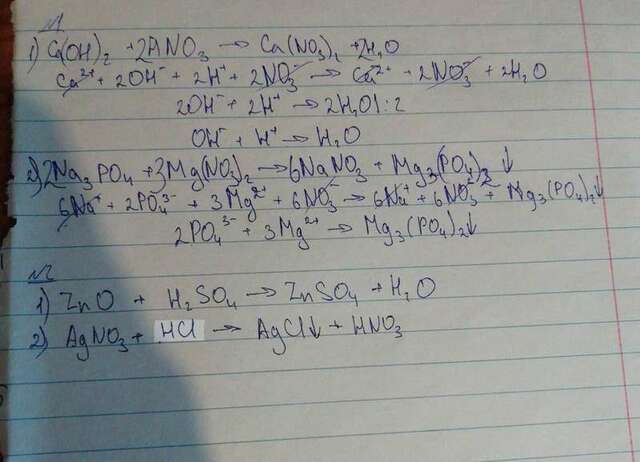 №1
1) Ca(OH)₂ + 2HNO₃ → Ca(NO₃)₂ + 2H₂O
Ca²⁺ + 2OH⁻ + 2H⁺ + 2NO₃⁻ → Ca²⁺ + 2NO₃⁻ + 2H₂O
2OH⁻ + 2H⁺ → 2H₂O | : 2
OH⁻ + H⁺ → H₂O
2) 2Na₃PO₄ + 3Mg(NO₃)₂ → 6NaNO₃ + Mg₃(PO₄)₂ ↓
6Na⁺ + 2PO₄³⁻ + 3Mg²⁺ + 6NO₃⁻ → 6Na⁺ + 6NO₃⁻ + Mg₃(PO₄)₂↓
2PO₄³⁻ + 3Mg²⁺ → Mg₃(PO₄)₂↓
№2
1) ZnO + H₂SO₄ → ZnSO₄ + H₂O
2) AgNO₃ + HCl → AgCl↓ + HNO₃